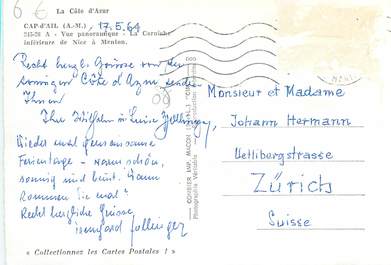 6 €
La Côte d'Azur
CAP-d'AIL (A.-M.) 17.5.64
A - Vue panoramique - La Corniche
inférieure de Nice à Menton.
Recht herzl. Grüsse von der
sonnigen Côte d'Azur senden
Ihnen
Ihr Wilhelm u. Luise
Wieder mal gemeinsame
Ferientage - warm, schön,
sonnig und bunt. Wann
kommen Sie mal?
Recht herzliche Grüsse
Irmgard
« Collectionnez les Cartes Postales ! »
COMBIER IMP. MACON
Monsieur et Madame
Johann Hermann
Uetlibergstrasse
Zürich
Suisse